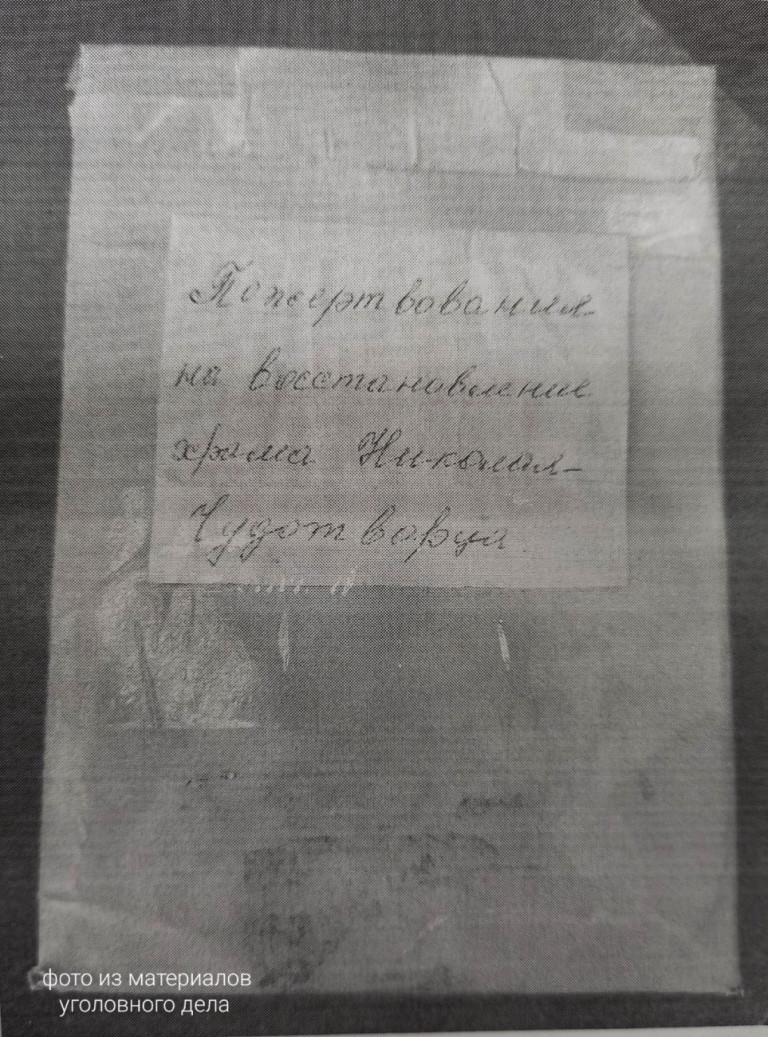 Пожертвования
на восстановление
храма Николая-
Чудотворца
фото из материалов
уголовного дела